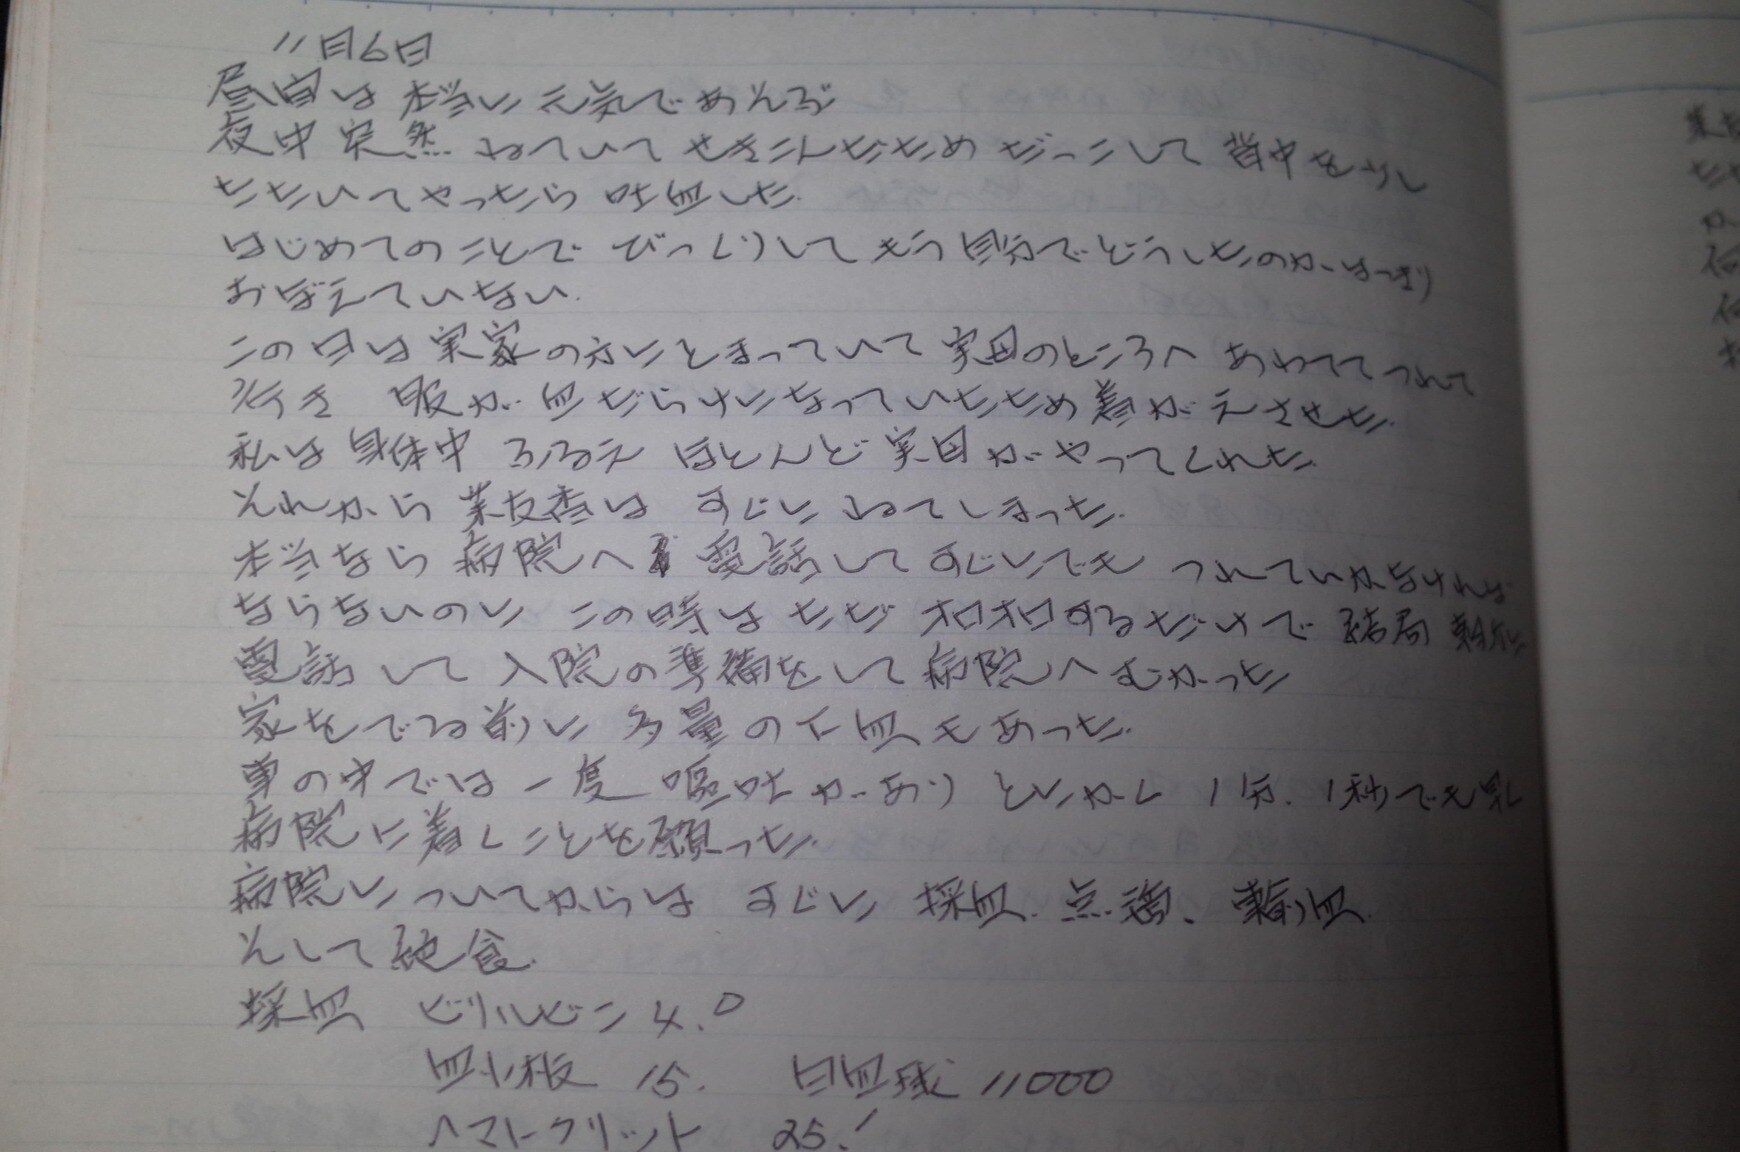 11月6日
昼間は本当に元気であそび
夜中突然ねていてせきこんだためだっこして背中を少し
たたいてやったら吐血した.
はじめてのことでびっくりしてもう自分でどうしたのかはっきり
おぼえていない.
この日は実家の方にとまっていて実母のところへあわててつれて
行き 服が血だらけになっていたため着がえさせた.
私は身体中ふるえ ほとんど実母がやってくれた.
それから茉友杏はすぐにねてしまった.
本当なら病院へ電話してすぐにでもつれていかなければ
ならないのに この時はただオロオロするだけで結局朝方に
電話して入院の準備をして病院へむかった
家をでる前に多量の下血もあった.
車の中では一度嘔吐があり とにかく1分、1秒でも早く
病院に着くことを願った.
病院についてからはすぐに採血、点滴、輸血.
そして絶食.
採血 ビリルビン4.0
血小板 15. 白血球 11000
ヘマトクリット 25.1